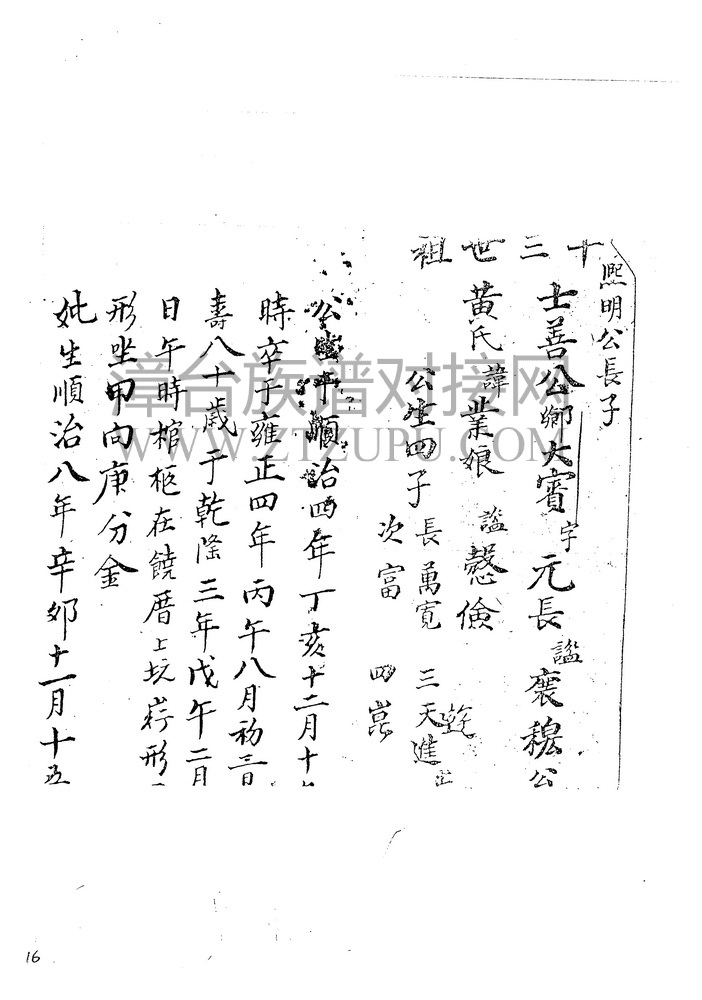 熙明公長子
十三世祖
士善公鄉大賓字元長謚襄穆公
黃氏諱業娘謚慇儉
公生四子長萬寬三天進
乾
次富四崑
公生于順治四年丁亥十二月十
時卒于雍正四年丙午八月初三日
壽八十歲于乾隆三年戊午二月
日午時棺柩在饒厝上坑形
形坐甲向庚分金
妣生順治八年辛卯十一月十五
漳台族谱对接网
WWW.ZTZUPU.COM
16